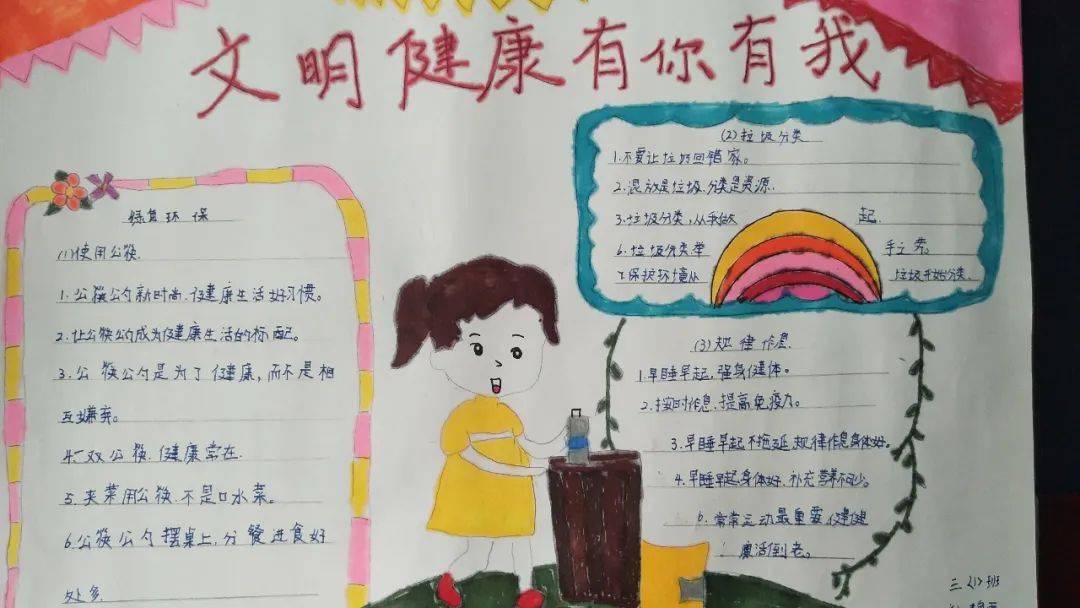 文明健康有你有我
绿色环保
(1)使用公筷
1.公筷公勺新时尚.健康生活好习惯。
2.让公筷公勺成为健康生活的标配。
3.公筷公勺是为了健康,而不是相
互嫌弃。
4.一双公筷.健康常在.
5.夹菜用公筷.不是口水菜。
6.公筷公勺摆桌上,分餐进食好
处多
(2)垃圾分类
1.不要让垃圾回错家。
2.混放是垃圾.分类是资源.
3.垃圾分类,从我做 起.
6.垃圾分类举 手之劳。
7.保护环境从 垃圾开始分类.
(3)规律作息.
1.早睡早起,强身健体。
2.按时作息.提高免疫力。
3.早睡早起不拖延.规律作息身体好。
4.早睡早起身体好.补充营养不可少。
6.常常运动最重要.健健
康活到老。
三〈1〉班